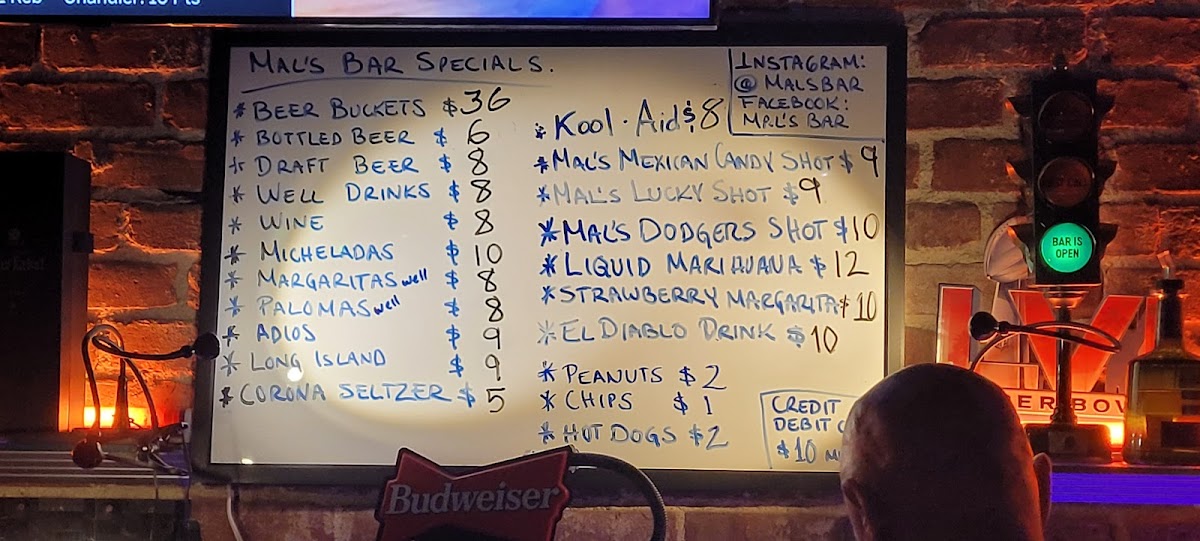 Chandler: 10 Pts
MAL'S BAR SPECIALS.
* BEER BUCKETS $36
* BOTTLED BEER $ 6
* DRAFT BEER $ 8
* WELL DRINKS $ 8
* WINE $ 8
* MICHELADAS $ 10
* MARGARITAS well $ 8
* PALOMAS well $ 8
* ADIOS $ 9
* LONG ISLAND $ 9
* CORONA SELTZER $ 5
* Kool-Aid $8
* MAL'S MEXICAN CANDY SHOT $ 9
* MAL'S LUCKY SHOT $9
* MAL'S DODGERS SHOT $10
* LIQUID MARIHUANA $ 12
* STRAWBERRY MARGARITA $10
* EL DIABLO DRINK $10
* PEANUTS $ 2
* CHIPS $ 1
* HOT DOGS $2
INSTAGRAM:
@ MALSBAR
FACEBOOK:
MAL'S BAR
CREDIT
DEBIT
$10
BAR IS
OPEN
LVI
ER BOW
Budweiser